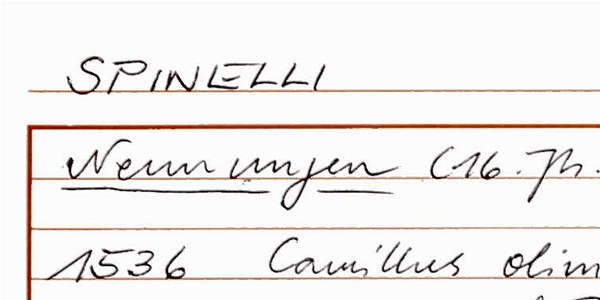 SPINELLI
Nennungen (16. Jh.
1536 Camillus olim